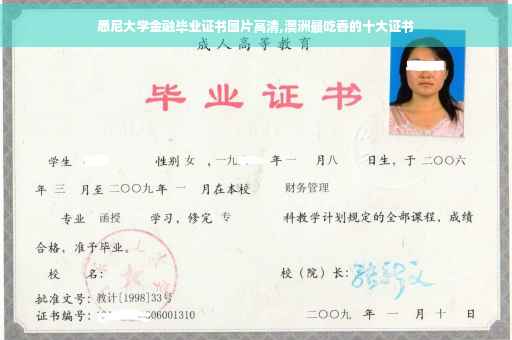 悉尼大学金融毕业证书图片高清,澳洲最吃香的十大证书
成人高等教育
毕业证书
学生 性别 女 ,一九 年 一 月 八 日生,于二〇〇六
年 三 月至二〇〇九年 一 月在本校 财务管理
专业 函授 学习,修完 专 科教学计划规定的全部课程,成绩
合格,准予毕业。
校 名: 校(院)长:
批准文号:教计[1998]33号
证书编号: 06001310 二〇〇九 年 一 月 十 日